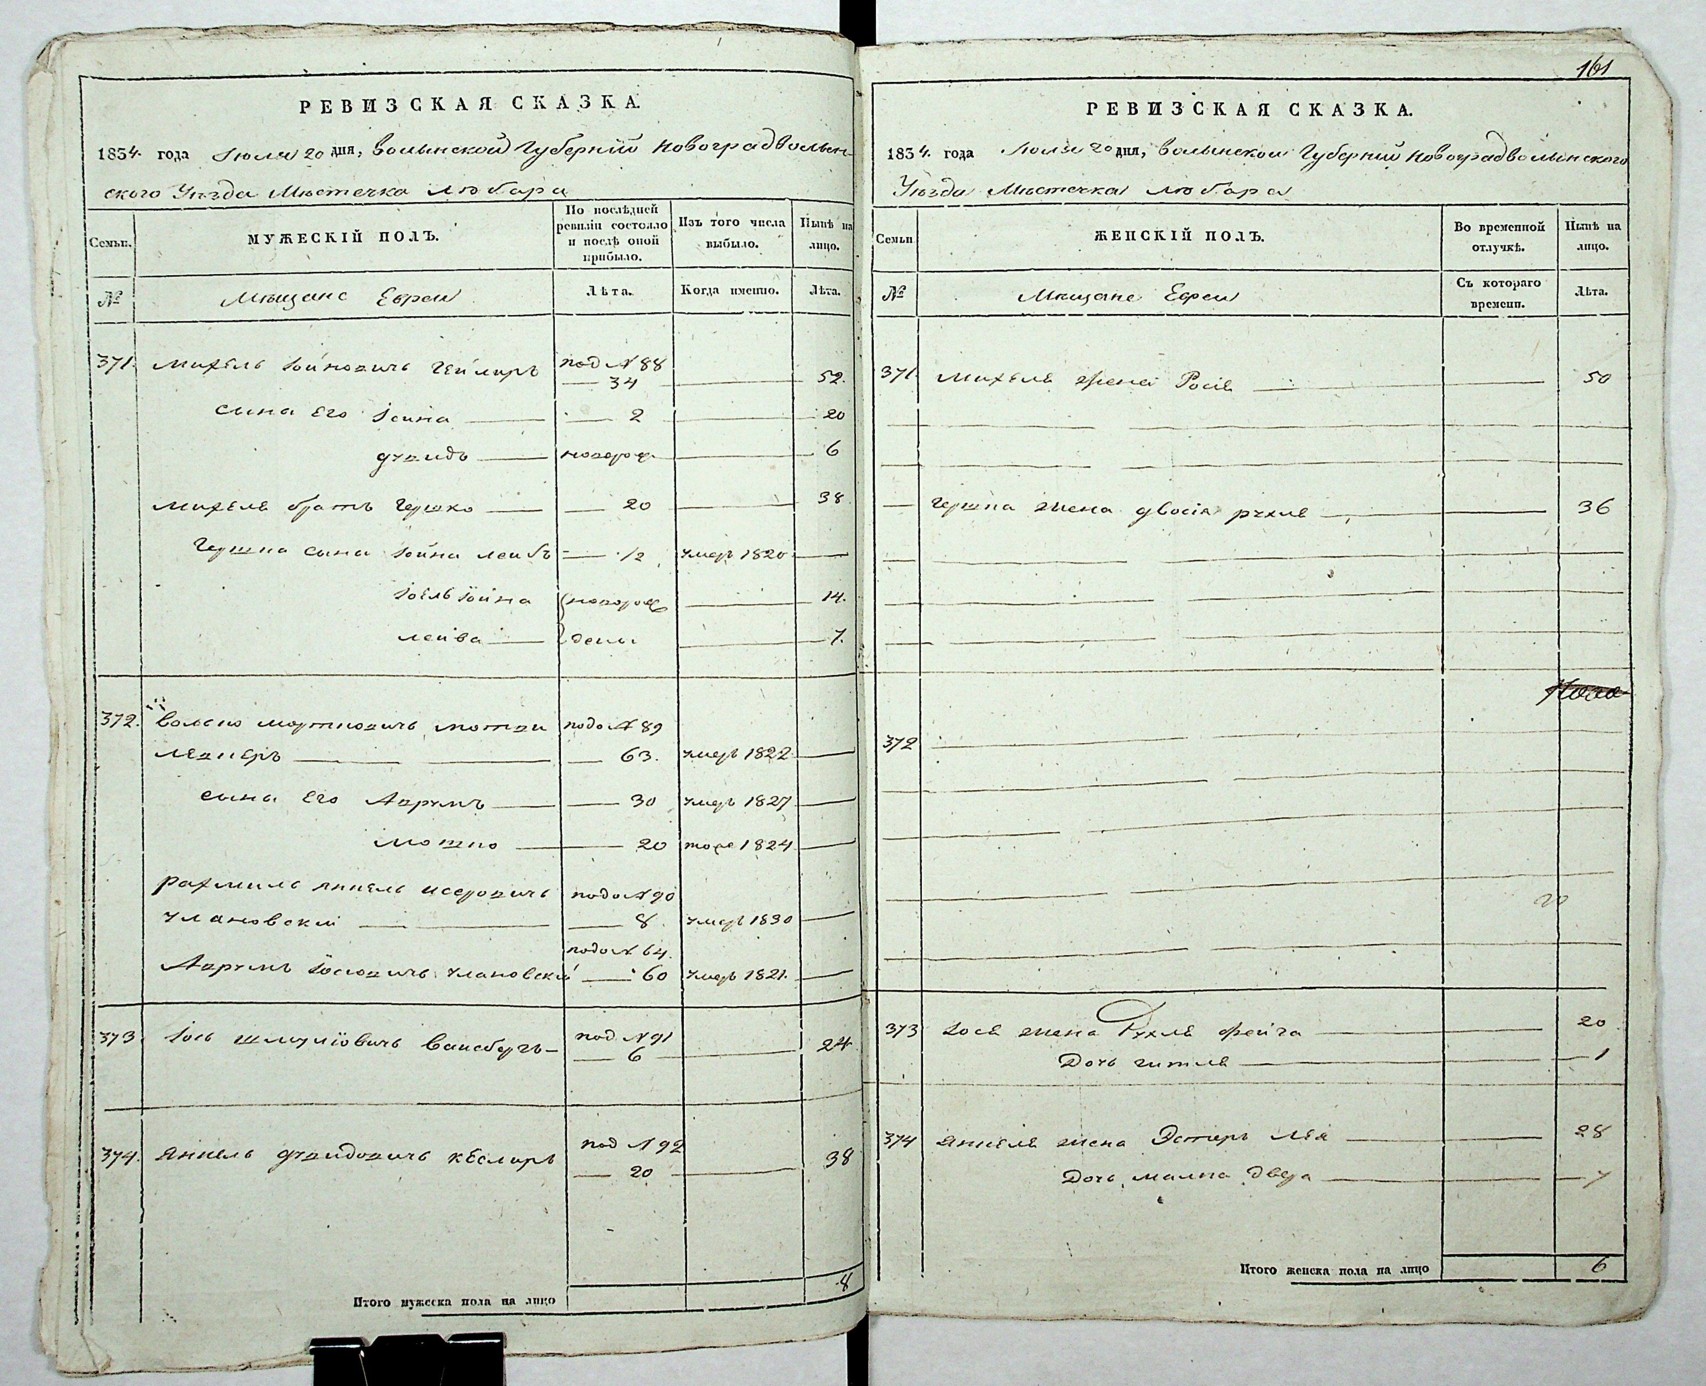 РЕВИЗСКАЯ СКАЗКА.
1834. года Июля 20 дня, Волынской Губернїи Новоградволын-
ского Уѣзда Мѣстечка Любара
Семьи.
МУЖЕСКІЙ ПОЛЪ.
По послѣдней ревизіи состояло и послѣ оной прибыло.
Изъ того числа выбыло.
Нынѣ на лицо.
№
Мѣщане Евреи
Лѣта.
Когда именно.
Лѣта.
371. Михель Іойновичъ под № 88
34 52.
сына его Іойна 2 20
дувидъ новорож 6
Михеля братъ Гершко 20 38
Гершка сына Іойна Лейбъ 1/2 умеръ 1820
Іоель Іойна новорож 14.
лейба дены 7.
372. подо № 89
63. умеръ 1822
сына его Аврумъ 30 умеръ 1827
мошко 20 тоже 1824
Рахмиль Янкель подо № 90
улановскій 8. умеръ 1830
подо № 64.
Аврумъ Іосіовичъ улановскій 60 умеръ 1821.
373 Іось шмулїовичъ Вайсбергъ под № 91
6 24
374. Янкель дувидовичъ Кеслеръ под № 92
20 38
Итого мужеска пола на лицо 8
161
РЕВИЗСКАЯ СКАЗКА.
1834. года Июля 20 дня, Волынской Губернїи Новоградволынского
Уѣзда Мѣстечка Любара
Семьи
ЖЕНСКІЙ ПОЛЪ.
Во временной отлучкѣ.
Нынѣ на лицо.
№
Мѣщане Евреи
Съ котораго времени.
Лѣта.
371 Михеля жена Рося 50
Гершка жена двося рухля 36
372
20
373 Іося жена Рухля фейга 20
Дочь гитля 1
374 Янкеля жена Эстеръ Лея 28
Дочь малка двера 7
Итого женска пола на лицо 6